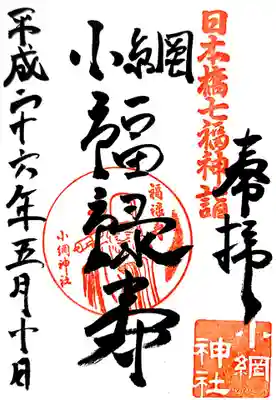 奉拝
日本橋七福神詣
小網
福禄寿
平成二十六年五月十日
小網神社
小網神社